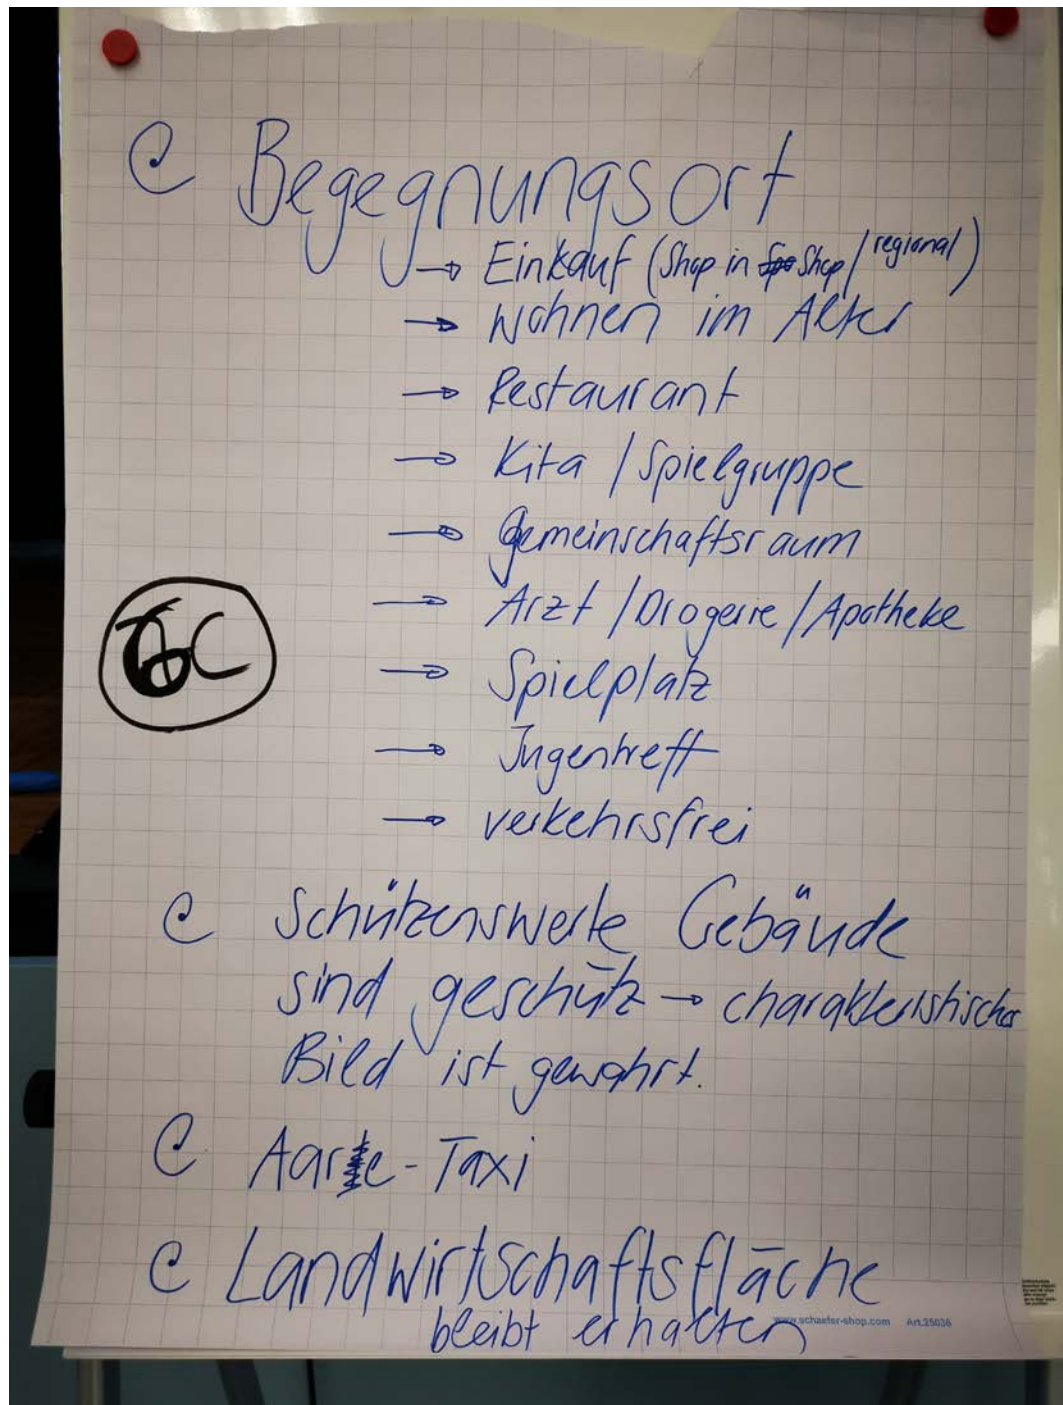 Begegnungsort
→ Einkauf (Shop in Shop / regional)
→ Wohnen im Alter
→ Restaurant
→ Kita / Spielgruppe
→ Gemeinschaftsraum
→ Arzt / Drogerie / Apotheke
→ Spielplatz
→ Jugentreff
→ verkehrsfrei
C
Schützenswerte Gebäude
sind geschütz → charakteristisches
Bild ist gewahrt.
Aare-Taxi
Landwirtschaftsfläche
bleibt erhalten
www.schaefer-shop.com Art.25036